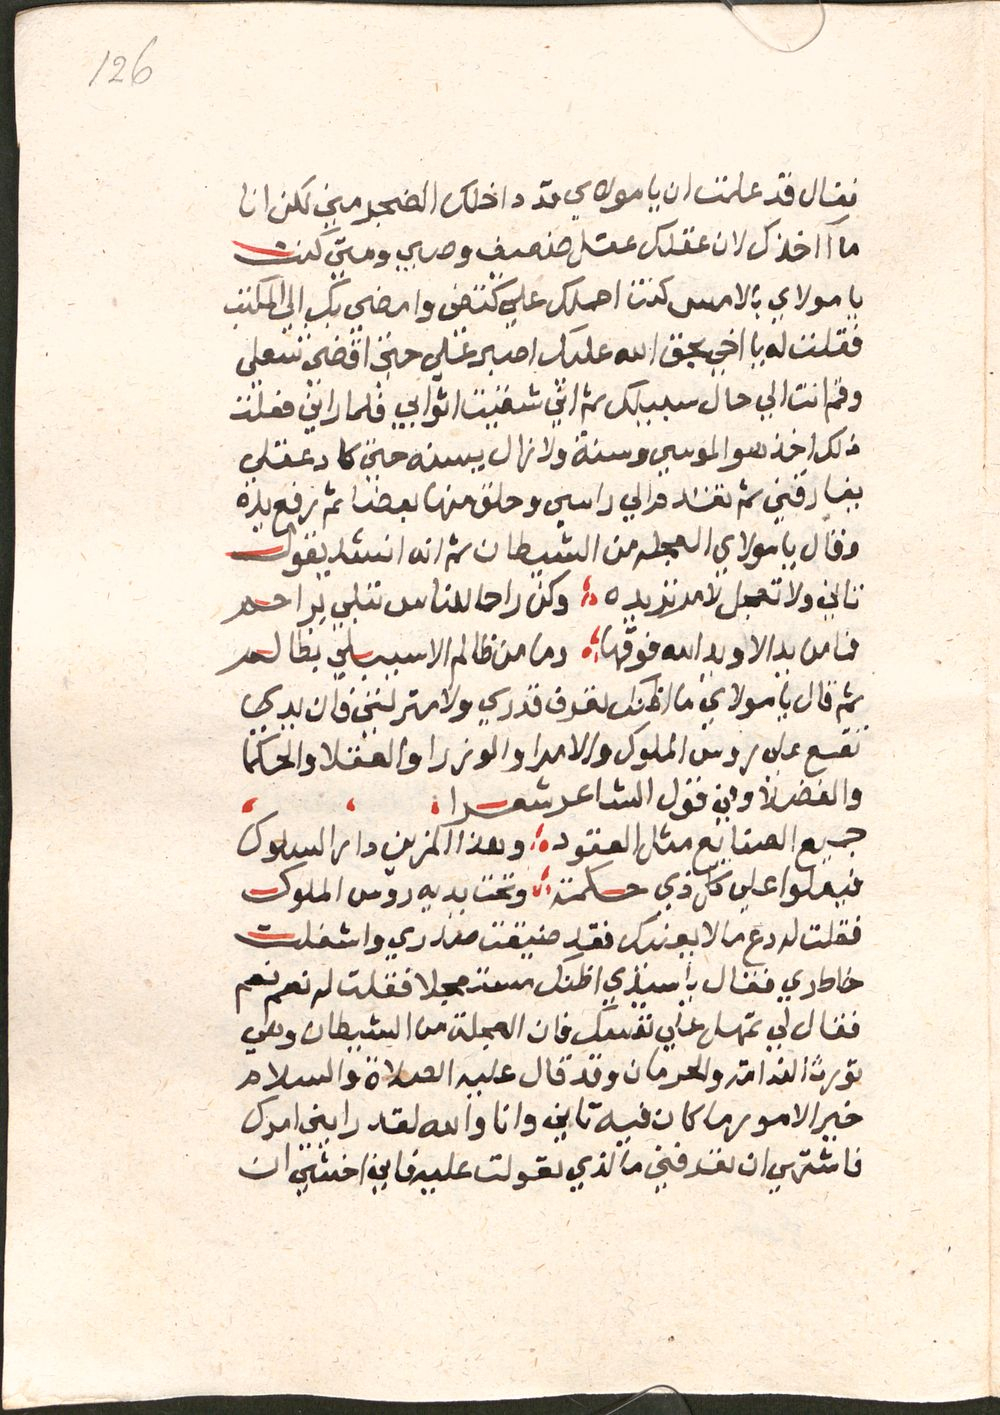 126
فقال قد علمت ان يا مولاي قد داخلك الضجر مني لكن انا
ما ااخذك لان عقلك عقل ضعيف وصبي ومتي كنت
يا مولاي بالامس كنت احملك علي كتفي وامضي بك الي المكتب
فقلت له يا اخي بحق الله عليك اصبر عني حتي اقضي شغلي
وقم انت الي حال سبيلك ثم اني شقيت اثوابي فلما راني فعلت
ذلك اخذ هو الموسي وسنة ولا زال يسنه حتي كاد عقلي
يفارقني ثم تقدم الي راسي وحلق منها بعضا ثم رفع يده
وقال يا مولاي العجله من الشيطان ثم انه انشد يقول
تاني ولا تعجل لامر تريده وكن راحما للناس تبلي براحم
فما من يد الا ويد الله فوقها وما من ظالم الا سيبلي بظالم
ثم قال يا مولاي ما اظنك تعرف قدري ولا منزلتي فان يدي
تقع علي روس الملوك والامرا والوزرا والعقلا والحكما
والفضلا وفي قول الشاعر شعرا
جميع الصنايع مثل العقود وهذا المزين دار السلوك
فيعلوا علي كل ذي حكمة وتحت يديه روس الملوك
فقلت له دع ما لا يعنيك فقد ضيقت صدري واشغلت
خاطري فقال يا سيدي اظنك مستعجلا فقلت له نعم نعم
فقال لي تمهل علي نفسك فان العجلة من الشيطان وهي
تورث الندامة والحرمان وقد قال عليه الصلاة والسلام
خير الامور ما كان فيه تاني وانا والله لقد رابني امرك
فاشتهي ان تعرفني ما الذي تعولت عليه فاني اخشي ان